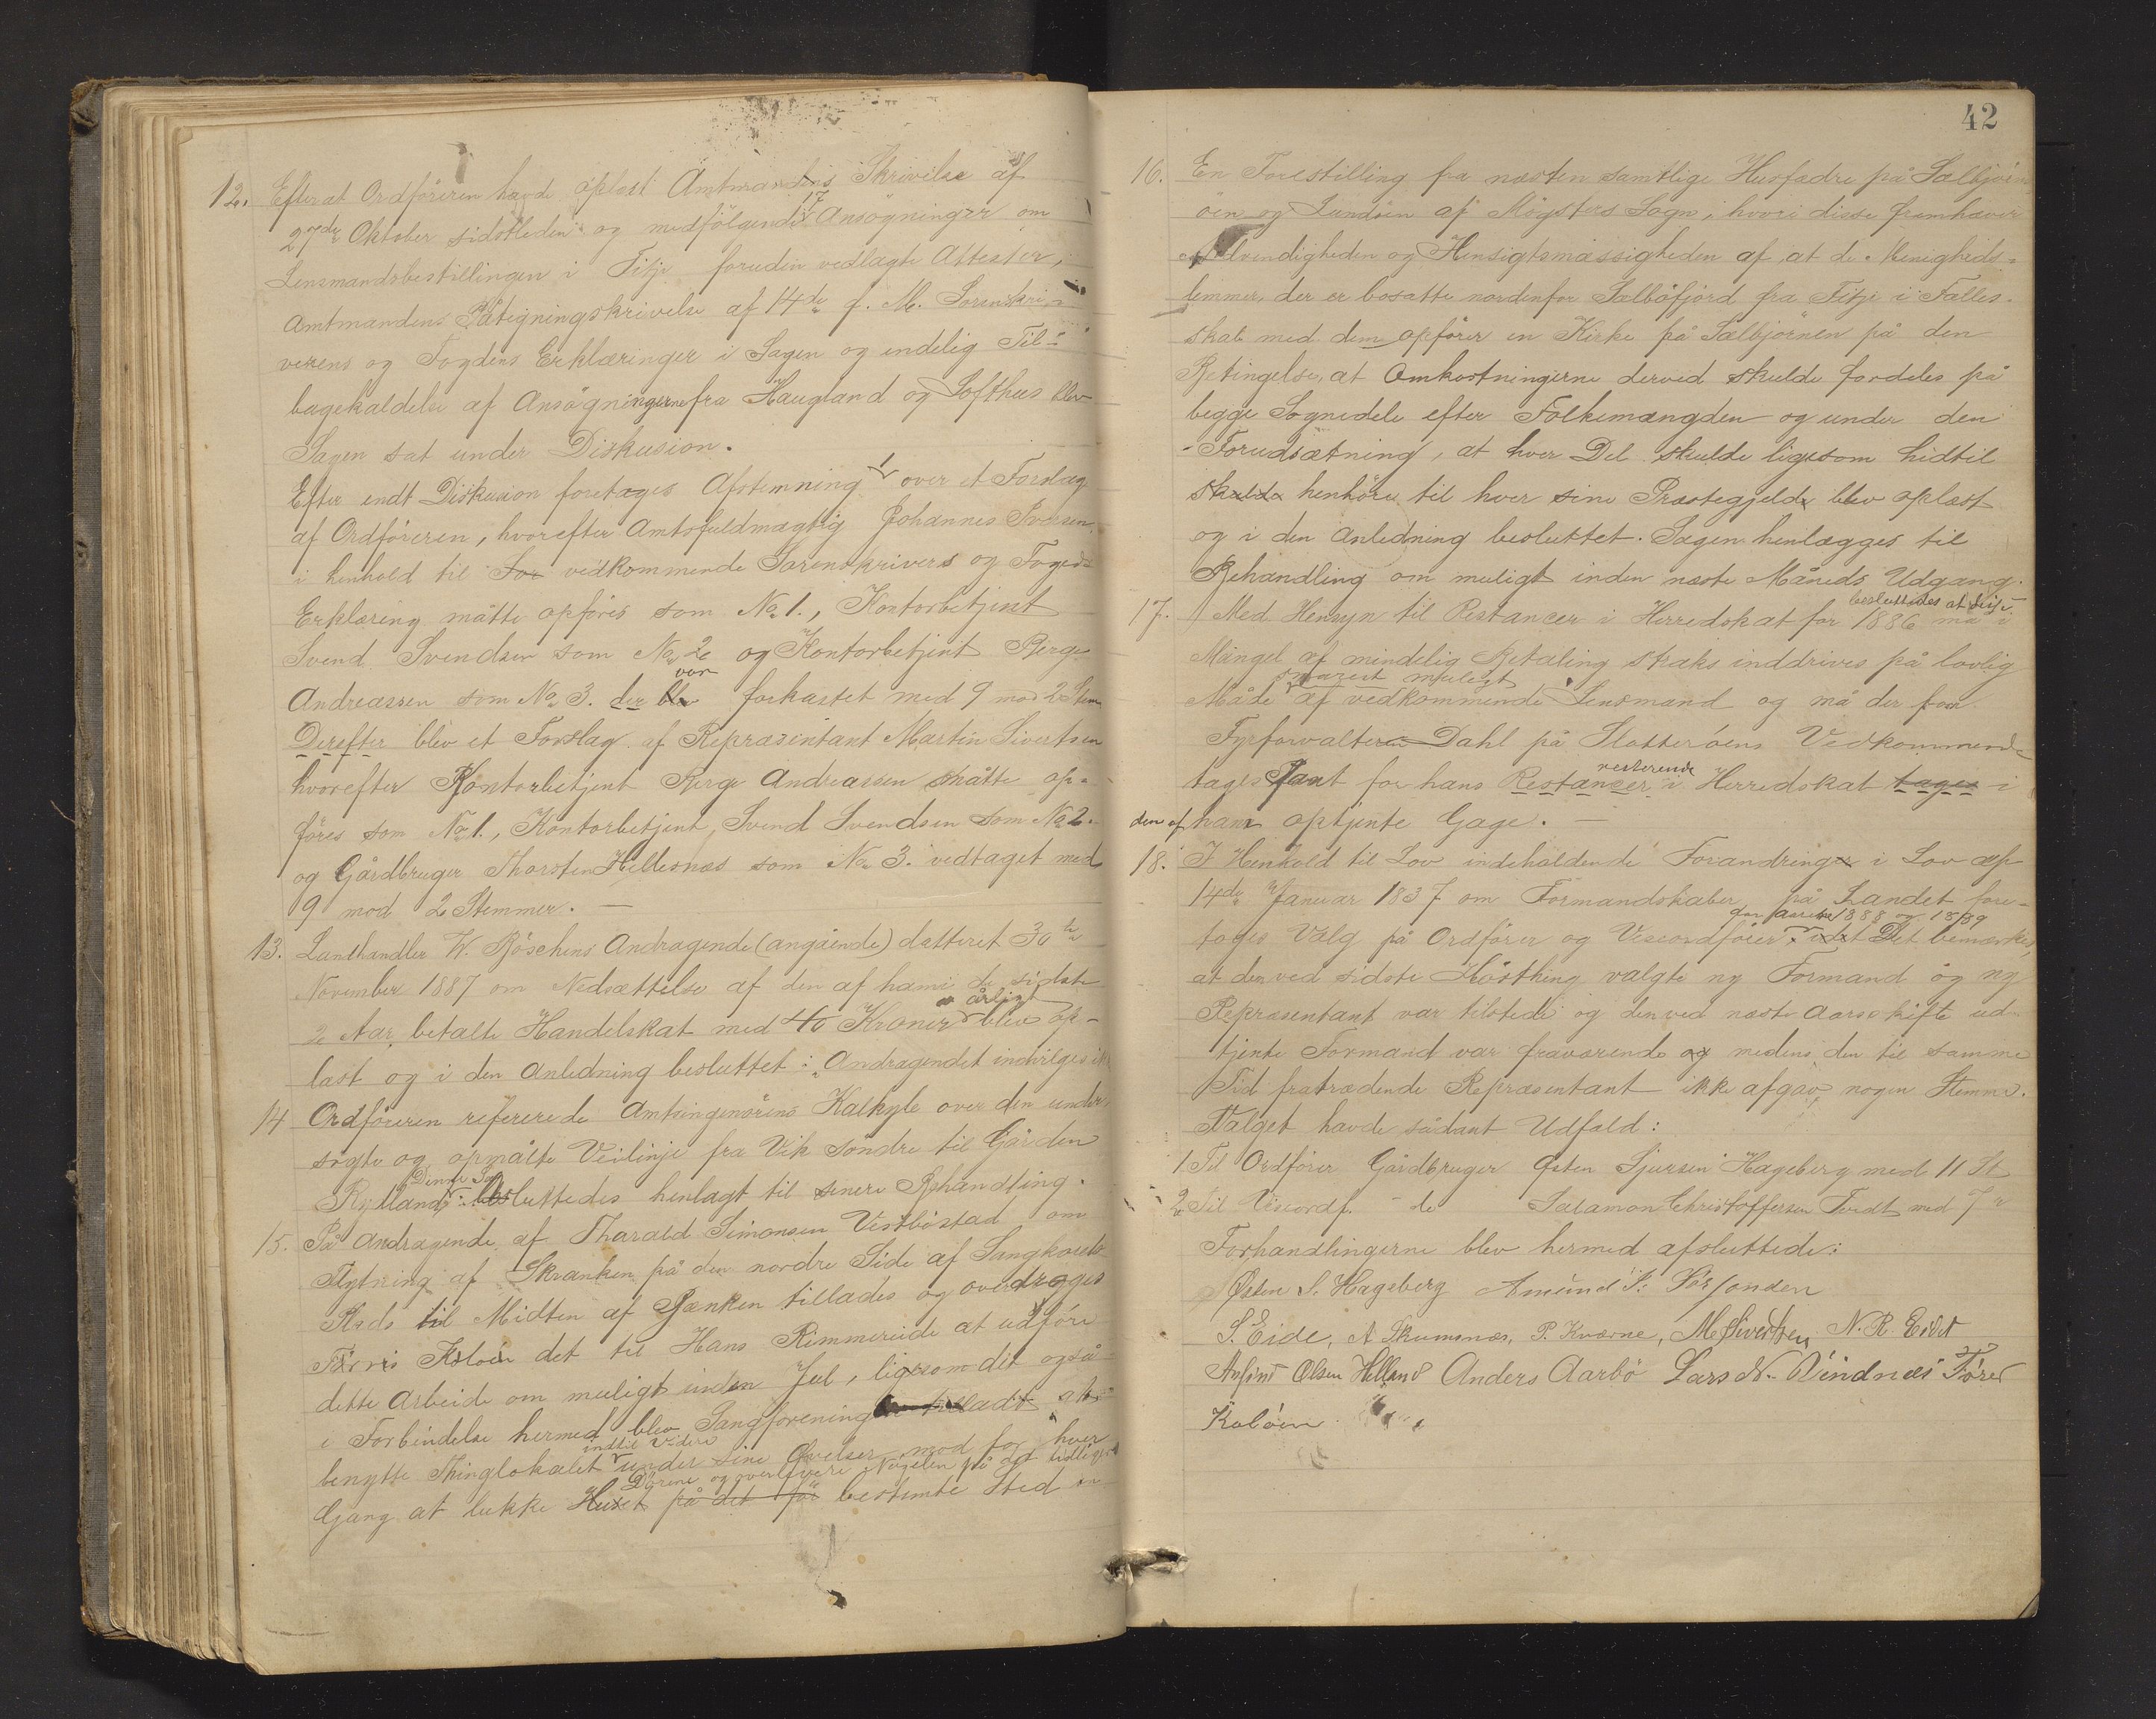 12. Efterat Ordføreren havde oplæst Amtmandens Skrivelse af
27de Oktober sidstleden og medfølgende 17 Ansøgninger om
Lensmandsbestillingen i Fitje foruden vedlagte Attester,
Amtmandens Påtegningskrivelse af 14de ds. M. Sorenskri-
verens og Fogdens Erklæringer i Sagen og endelig Til-
bagekaldelse af Ansøgningerne fra Haugland og Lofthus blev
Sagen sat under Diskusion.
Efter endt Diskusion foretages Afstemning 1 over et Forslag
af Ordføreren, hvorefter Amtsfuldmægtig Johannes Iversen
i henhold til For vedkommende Sorenskrivers og Fogeds
Erklæring måtte opføres som No 1., Kontorbetjent
Svend Svendsen som No 2 og Kontorbetjent Berge
Andreassen som No 3. der blev var forkastet med 9 mod 2 Stem
Derefter blev et Forslag af Repræsintant Martin Sivertsen
hvorefter Kontorbetjent Berge Andreassen måtte op-
føres som No 1., Kontorbetjent, Svend Svendsen som No 2.
og Gårdbruger Thorsten Hellesnæs som No 3. vedtaget med
9 mod 2 Stemmer. —
13. Landhandler W. Röschens Andragende (angående) datteret 30te
November 1887 om Nedsættelse af den af ham i de sidste
2 Aar betalte Handelskat med 40 Kroner årligt blev op-
læst og i den Anledning besluttet: "Andragendet indvilges ikke
14 Ordføreren refererede Amtsingeniörens Kalkyle over den under-
søgte og opmålte Veilinje fra Vik søndre til Gården
Rydland: Denne Sag besluttedes henlagt til senere Behandling.
15. På Andragende af Tharald Simonsen Vestbøstad om
Flytning af Skranken på den nordre Side af Sangkorets
Plads til Midten af Bænken tillades og overdrages
Törris Koløen det til Hans Rimmereide at udføre
dette Arbeide om muligt inden Jul, ligesom det også
i Forbindelse hermed blev Sangforeningen tilladt at
benytte Thinglokalet indtil Videre under sine Øvelser mod for hver
Gang at lukke Huset Dørene og overlevere Nøgelen på det tidligere på det før bestemte Sted
42
16. En Forestilling fra næsten samtlige Husfædre på Sælbjörn
öen og Lundöen af Møgsters Sogn, hvori disse fremhæver
Nødvendigheden og Hensigtsmæssigheden af, at de Menigheds-
lemmer, der er bosatte nordenfor Sælböfjord fra Fitje i Fælles-
skab med dem opförer en Kirke på Sælbjörnen på den
Betingelse, at Omkostningerne derved skulde fordeles på
begge Sognedele efter Folkemængden og under den
Forudsætning, at hver Del skulde ligesom hidtil
skulde henhøre til hver sine Præstegjelde blev oplæst
og i den Anledning besluttet. Sagen henlægges til
Behandling om muligt inden næste Måneds Udgang.
17. Med Hensyn til Restancer i Herredskat for 1886 besluttedes at disse må i
Mangel af mindelig Betaling straks inddrives på lovlig
Måde snarest muligt af vedkommende Lensmand og må der fra
Fyrforvalteren Dahl på Slotterøens Vedkommende
tages Pant for hans Restancer resterende i Herredskat tages i
den af ham optjente Gage. —
18. I Henhold til Lov indeholdende Forandringer i Lov af
14de Januar 1837 om Formandskaber på Landet fore-
toges Valg på Ordfører og Viceordfører for Aarene 1888 og 1889 idet Det bemærkes,
at den ved sidste Høstthing valgte ny Formand og ny
Repræsentant var tilstede og den ved næste Aarsskifte ud-
tjente Formand var fraværende og medens den til samme
Tid fratrædende Repræsentant ikke afgav nogen Stemme.
Valget havde sådant Udfald:
1. Til Ordfører Gårdbruger Østen Sjursen Hageberg med 11 St
2 Til Viceordf. do Salamon Christoffersen Tvedt med 7 "
Forhandlingerne blev hermed afsluttede:
Østen S. Hageberg Amund
S. Eide, A. Skumsnæs, P. Kværne, M. Sivertsen, N. R. Eidet
Anfind Olsen Helland Anders Aarbö Lars N. Vindnæs Törres
Kaløen